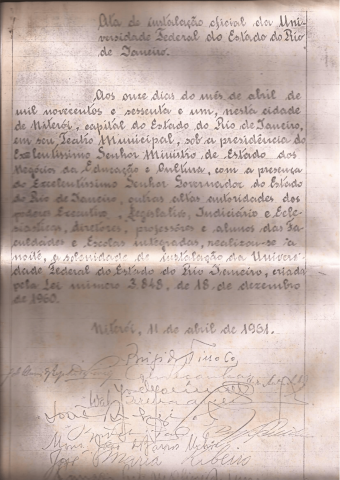 Ata de instalação oficial da Uni-
versidade Federal do Estado do Rio
de Janeiro.
Aos onze dias do mês de abril de
mil novecentos e sessenta e um, nesta cidade
de Niterói, capital do Estado do Rio de Janeiro,
em seu Teatro Municipal, sob a presidência do
Excelentíssimo Senhor Ministro de Estado dos
Negócios da Educação e Cultura, com a presença
do Excelentíssimo Senhor Governador do Estado
do Rio de Janeiro, outras altas autoridades dos
poderes Executivo, Legislativo, Judiciário e Ecle-
siástico, diretores, professores e alunos das Fa-
culdades e Escolas integradas, realizou-se à
noite, a solenidade de instalação da Universi-
dade Federal do Estado do Rio Janeiro, criada
pela Lei número 3.848, de 18 de dezembro
de 1960.
Niterói, 11 de abril de 1961.
José Maria Ribeiro